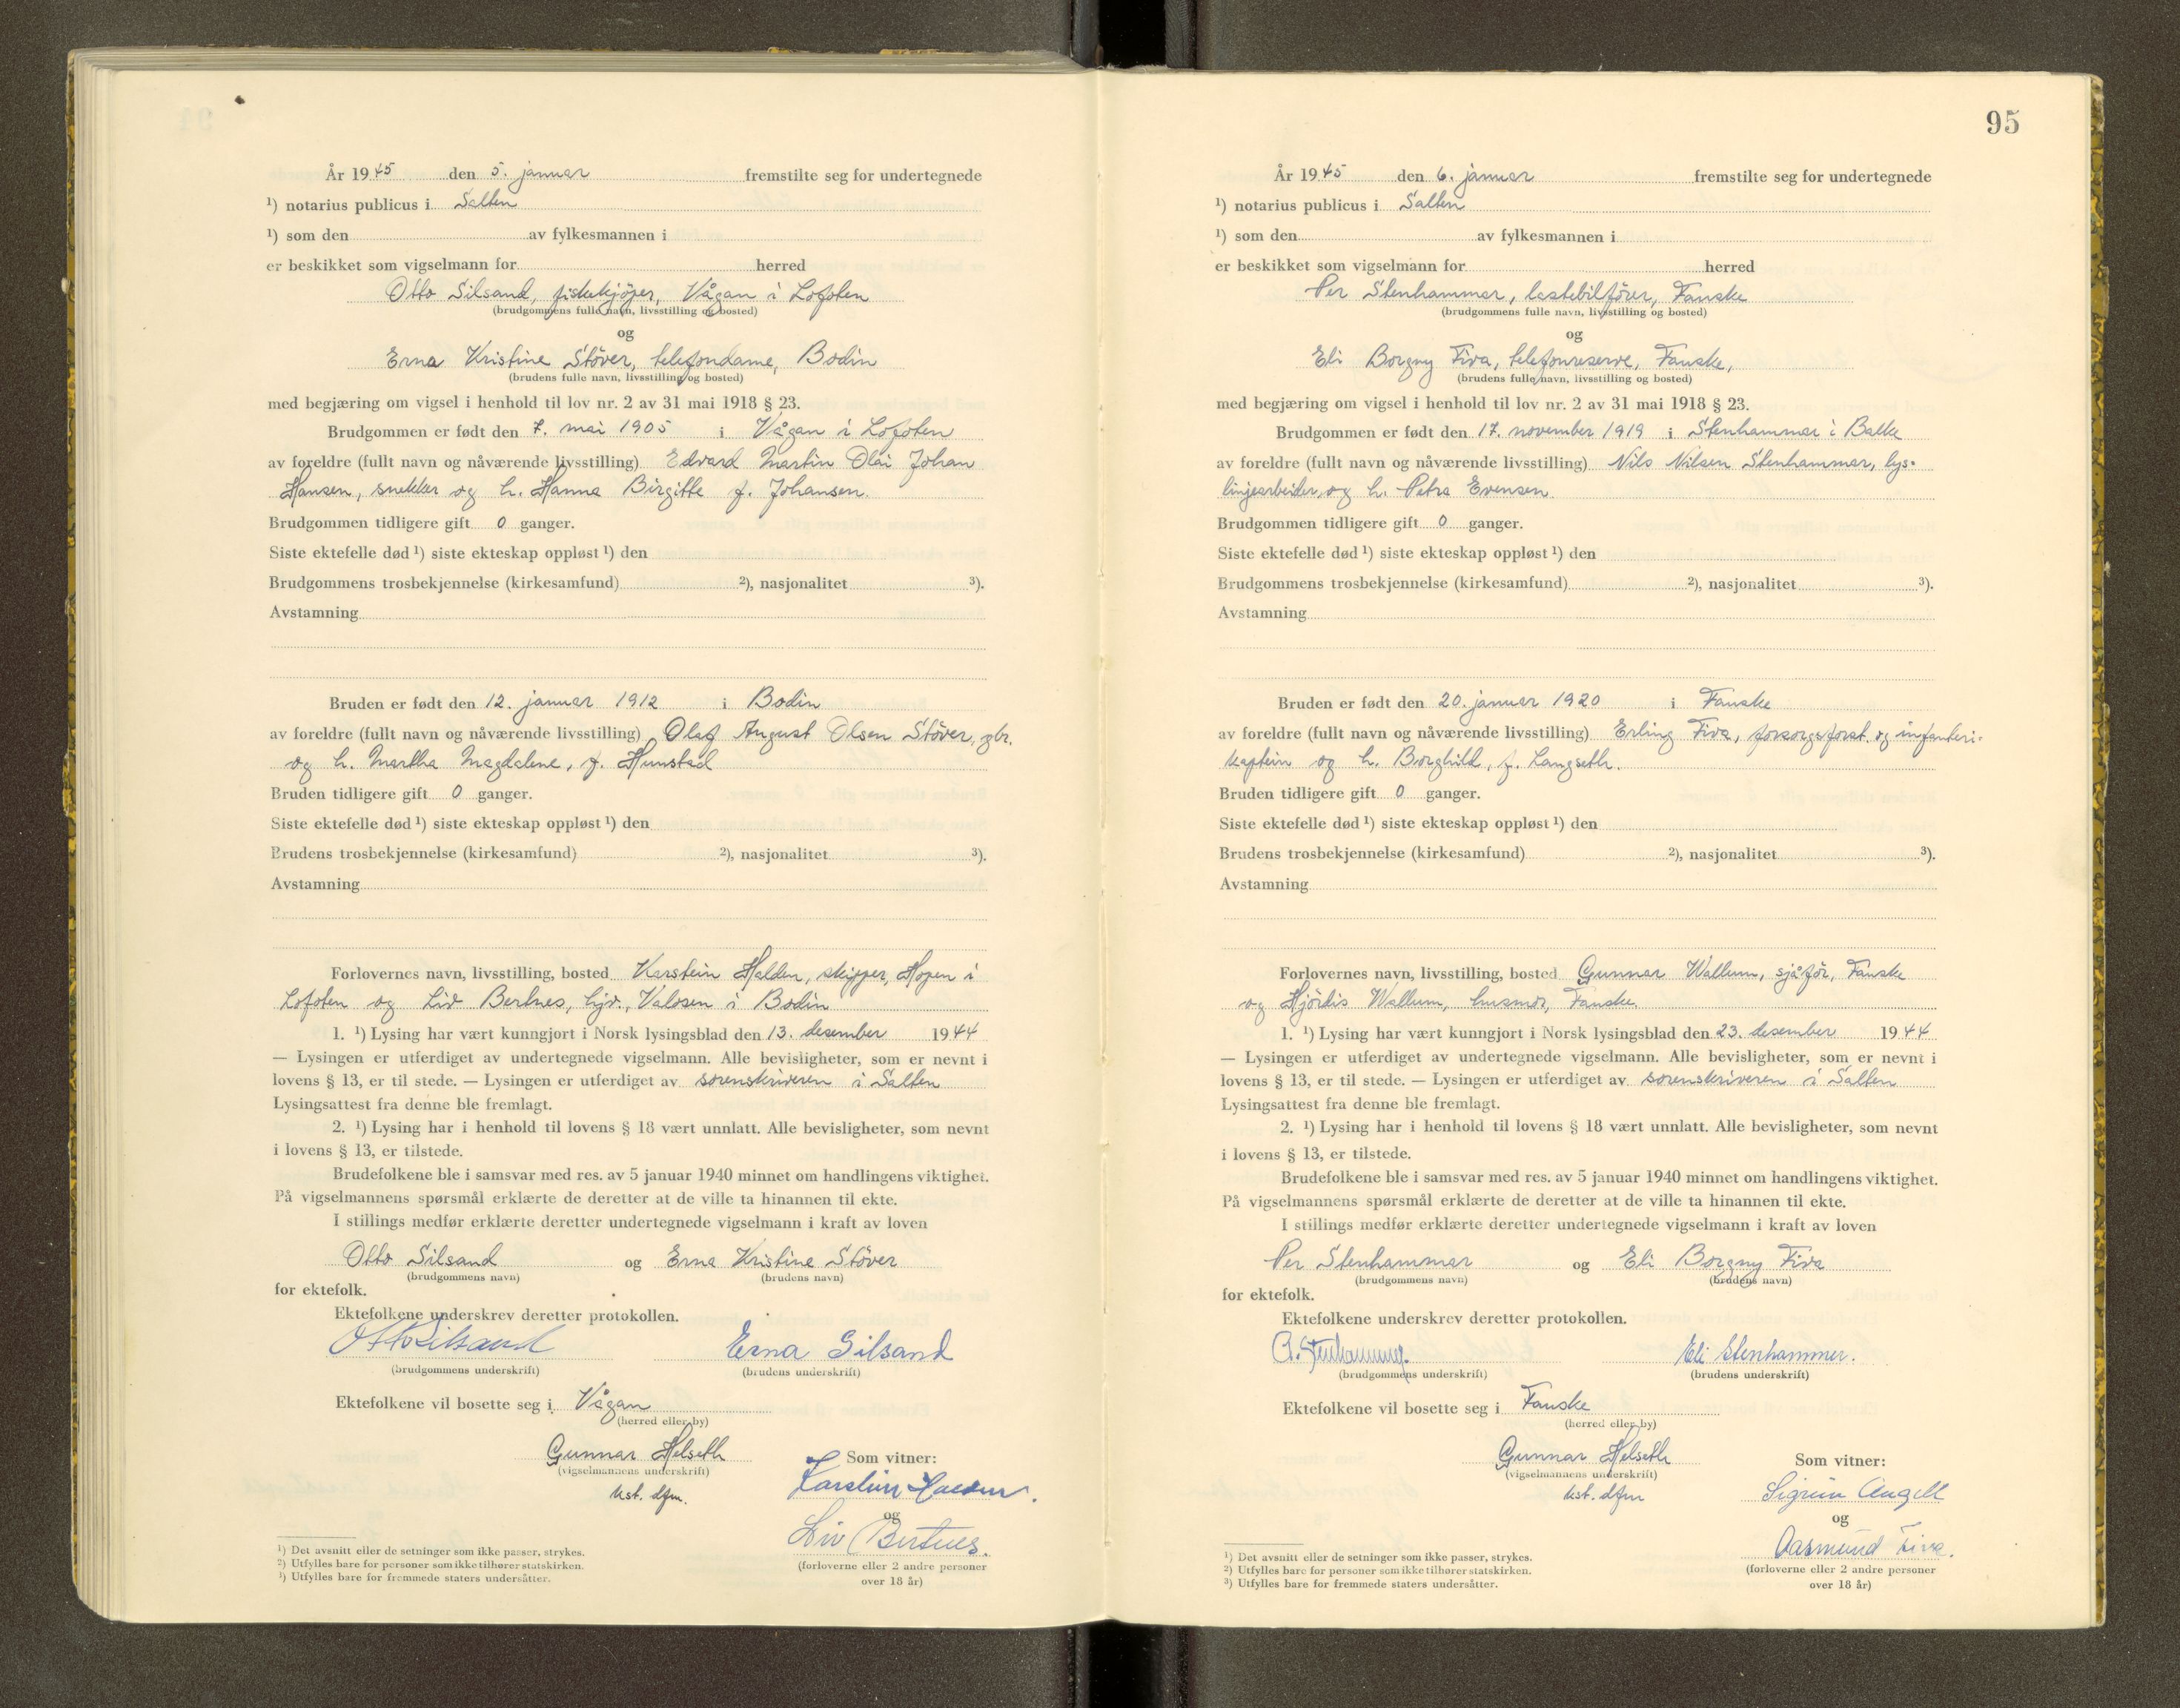 År 1945 den 5. januar fremstilte seg for undertegnede
¹) notarius publicus i Salten
¹) som den av fylkesmannen i
er beskikket som vigselmann for herred
Otto Silsand, fiskekjöper, Vågan i Lofoten
(brudgommens fulle navn, livsstilling og bosted)
og
Erna Kristine Stöver, telefondame, Bodin
(brudens fulle navn, livsstilling og bosted)
med begjæring om vigsel i henhold til lov nr. 2 av 31 mai 1918 § 23.
Brudgommen er født den 7. mai 1905 i Vågan i Lofoten
av foreldre (fullt navn og nåværende livsstilling) Edvard Martin Olai Johan
Hansen, snekker og h. Hanna Birgitte f. Johansen.
Brudgommen tidligere gift 0 ganger.
Siste ektefelle død ¹) siste ekteskap oppløst ¹) den
Brudgommens trosbekjennelse (kirkesamfund) ²), nasjonalitet ³).
Avstamning
Bruden er født den 12. januar 1912 i Bodin
av foreldre (fullt navn og nåværende livsstilling) Olaf August Olsen Stöver, gbr.
og h. Martha Magdalene, f. Hunstad
Bruden tidligere gift 0 ganger.
Siste ektefelle død ¹) siste ekteskap oppløst ¹) den
Brudens trosbekjennelse (kirkesamfund) ²), nasjonalitet ³).
Avstamning
Forlovernes navn, livsstilling, bosted Karstein Halden, skipper, Hopen i
Lofoten og Liv Bertnes, hjv., Valosen i Bodin
1. ¹) Lysing har vært kunngjort i Norsk lysingsblad den 13. desember 1944
— Lysingen er utferdiget av undertegnede vigselmann. Alle bevisligheter, som er nevnt i
lovens § 13, er til stede. — Lysingen er utferdiget av sorenskriveren i Salten
Lysingsattest fra denne ble fremlagt.
2. ¹) Lysing har i henhold til lovens § 18 vært unnlatt. Alle bevisligheter, som nevnt
i lovens § 13, er tilstede.
Brudefolkene ble i samsvar med res. av 5 januar 1940 minnet om handlingens viktighet.
På vigselmannens spørsmål erklærte de deretter at de ville ta hinannen til ekte.
I stillings medfør erklærte deretter undertegnede vigselmann i kraft av loven
Otto Silsand og Erna Kristine Stöver
(brudgommens navn) (brudens navn)
for ektefolk.
Ektefolkene underskrev deretter protokollen.
Otto Silsand Erna Silsand
(brudgommens underskrift) (brudens underskrift)
Ektefolkene vil bosette seg i Vågan
(herred eller by)
Gunnar Helseth
(vigselmannens underskrift)
kst. dfm.
Som vitner:
Karstein Halden.
og
Liv Bertnes.
(forloverne eller 2 andre personer
over 18 år)
¹) Det avsnitt eller de setninger som ikke passer, strykes.
²) Utfylles bare for personer som ikke tilhører statskirken.
³) Utfylles bare for fremmede staters undersåtter.
95
År 1945 den 6. januar fremstilte seg for undertegnede
¹) notarius publicus i Salten
¹) som den av fylkesmannen i
er beskikket som vigselmann for herred
Per Stenhammar, lastebilförer, Fauske
(brudgommens fulle navn, livsstilling og bosted)
og
Eli Borgny Fiva, telefonreserve, Fauske,
(brudens fulle navn, livsstilling og bosted)
med begjæring om vigsel i henhold til lov nr. 2 av 31 mai 1918 § 23.
Brudgommen er født den 17. november 1919 i Stenhammar i Balke
av foreldre (fullt navn og nåværende livsstilling) Nils Nilsen Stenhammar, lys-
linjearbeider, og h. Petra Evensen.
Brudgommen tidligere gift 0 ganger.
Siste ektefelle død ¹) siste ekteskap oppløst ¹) den
Brudgommens trosbekjennelse (kirkesamfund) ²), nasjonalitet ³).
Avstamning
Bruden er født den 20. januar 1920 i Fauske
av foreldre (fullt navn og nåværende livsstilling) Erling Fiva, forsorgsforst. og infanteri-
kaptein og h. Borghild, f. Langseth.
Bruden tidligere gift 0 ganger.
Siste ektefelle død ¹) siste ekteskap oppløst ¹) den
Brudens trosbekjennelse (kirkesamfund) ²), nasjonalitet ³).
Avstamning
Forlovernes navn, livsstilling, bosted Gunnar Wallum, sjåför, Fauske
og Hjördis Wallum, husmor, Fauske.
1. ¹) Lysing har vært kunngjort i Norsk lysingsblad den 23. desember 1944
— Lysingen er utferdiget av undertegnede vigselmann. Alle bevisligheter, som er nevnt i
lovens § 13, er til stede. — Lysingen er utferdiget av sorenskriveren i Salten
Lysingsattest fra denne ble fremlagt.
2. ¹) Lysing har i henhold til lovens § 18 vært unnlatt. Alle bevisligheter, som nevnt
i lovens § 13, er tilstede.
Brudefolkene ble i samsvar med res. av 5 januar 1940 minnet om handlingens viktighet.
På vigselmannens spørsmål erklærte de deretter at de ville ta hinannen til ekte.
I stillings medfør erklærte deretter undertegnede vigselmann i kraft av loven
Per Stenhammar og Eli Borgny Fiva
(brudgommens navn) (brudens navn)
for ektefolk.
Ektefolkene underskrev deretter protokollen.
P. Stenhammer. Eli Stenhammer.
(brudgommens underskrift) (brudens underskrift)
Ektefolkene vil bosette seg i Fauske
(herred eller by)
Gunnar Helseth
(vigselmannens underskrift)
kst. dfm
Som vitner:
Sigrun Angell
og
Aasmund Fiva.
(forloverne eller 2 andre personer
over 18 år)
¹) Det avsnitt eller de setninger som ikke passer, strykes.
²) Utfylles bare for personer som ikke tilhører statskirken.
³) Utfylles bare for fremmede staters undersåtter.